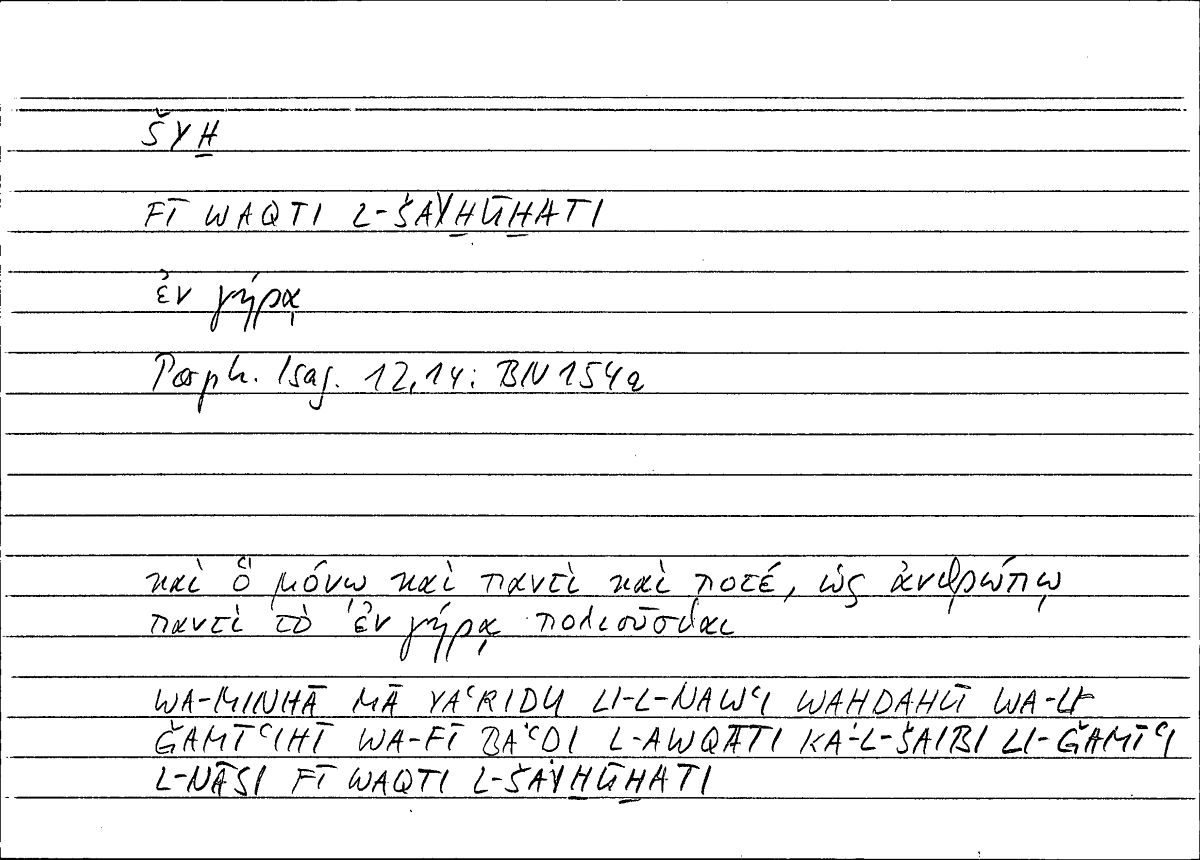 ŠYḪ
FĪ WAQTI L-ŠAYḪŪḪATI
ἐν γήρᾳ
Porph. Isag. 12,14: BN 154a
καὶ ὃ μόνῳ καὶ παντὶ καὶ ποτέ, ὡς ἀνθρώπῳ
παντὶ τὸ ἐν γήρᾳ πολιοῦσθαι
WA-MINHĀ MĀ YAʿRIDU LI-L-NAWʿI WAHDAHŪ WA-LI-
ǦAMĪʿIHĪ WA-FĪ BAʿDI L-AWQĀTI KA-L-ŠAIBI LI-ǦAMĪʿI
L-NĀSI FĪ WAQTI L-ŠAYḪŪḪATI